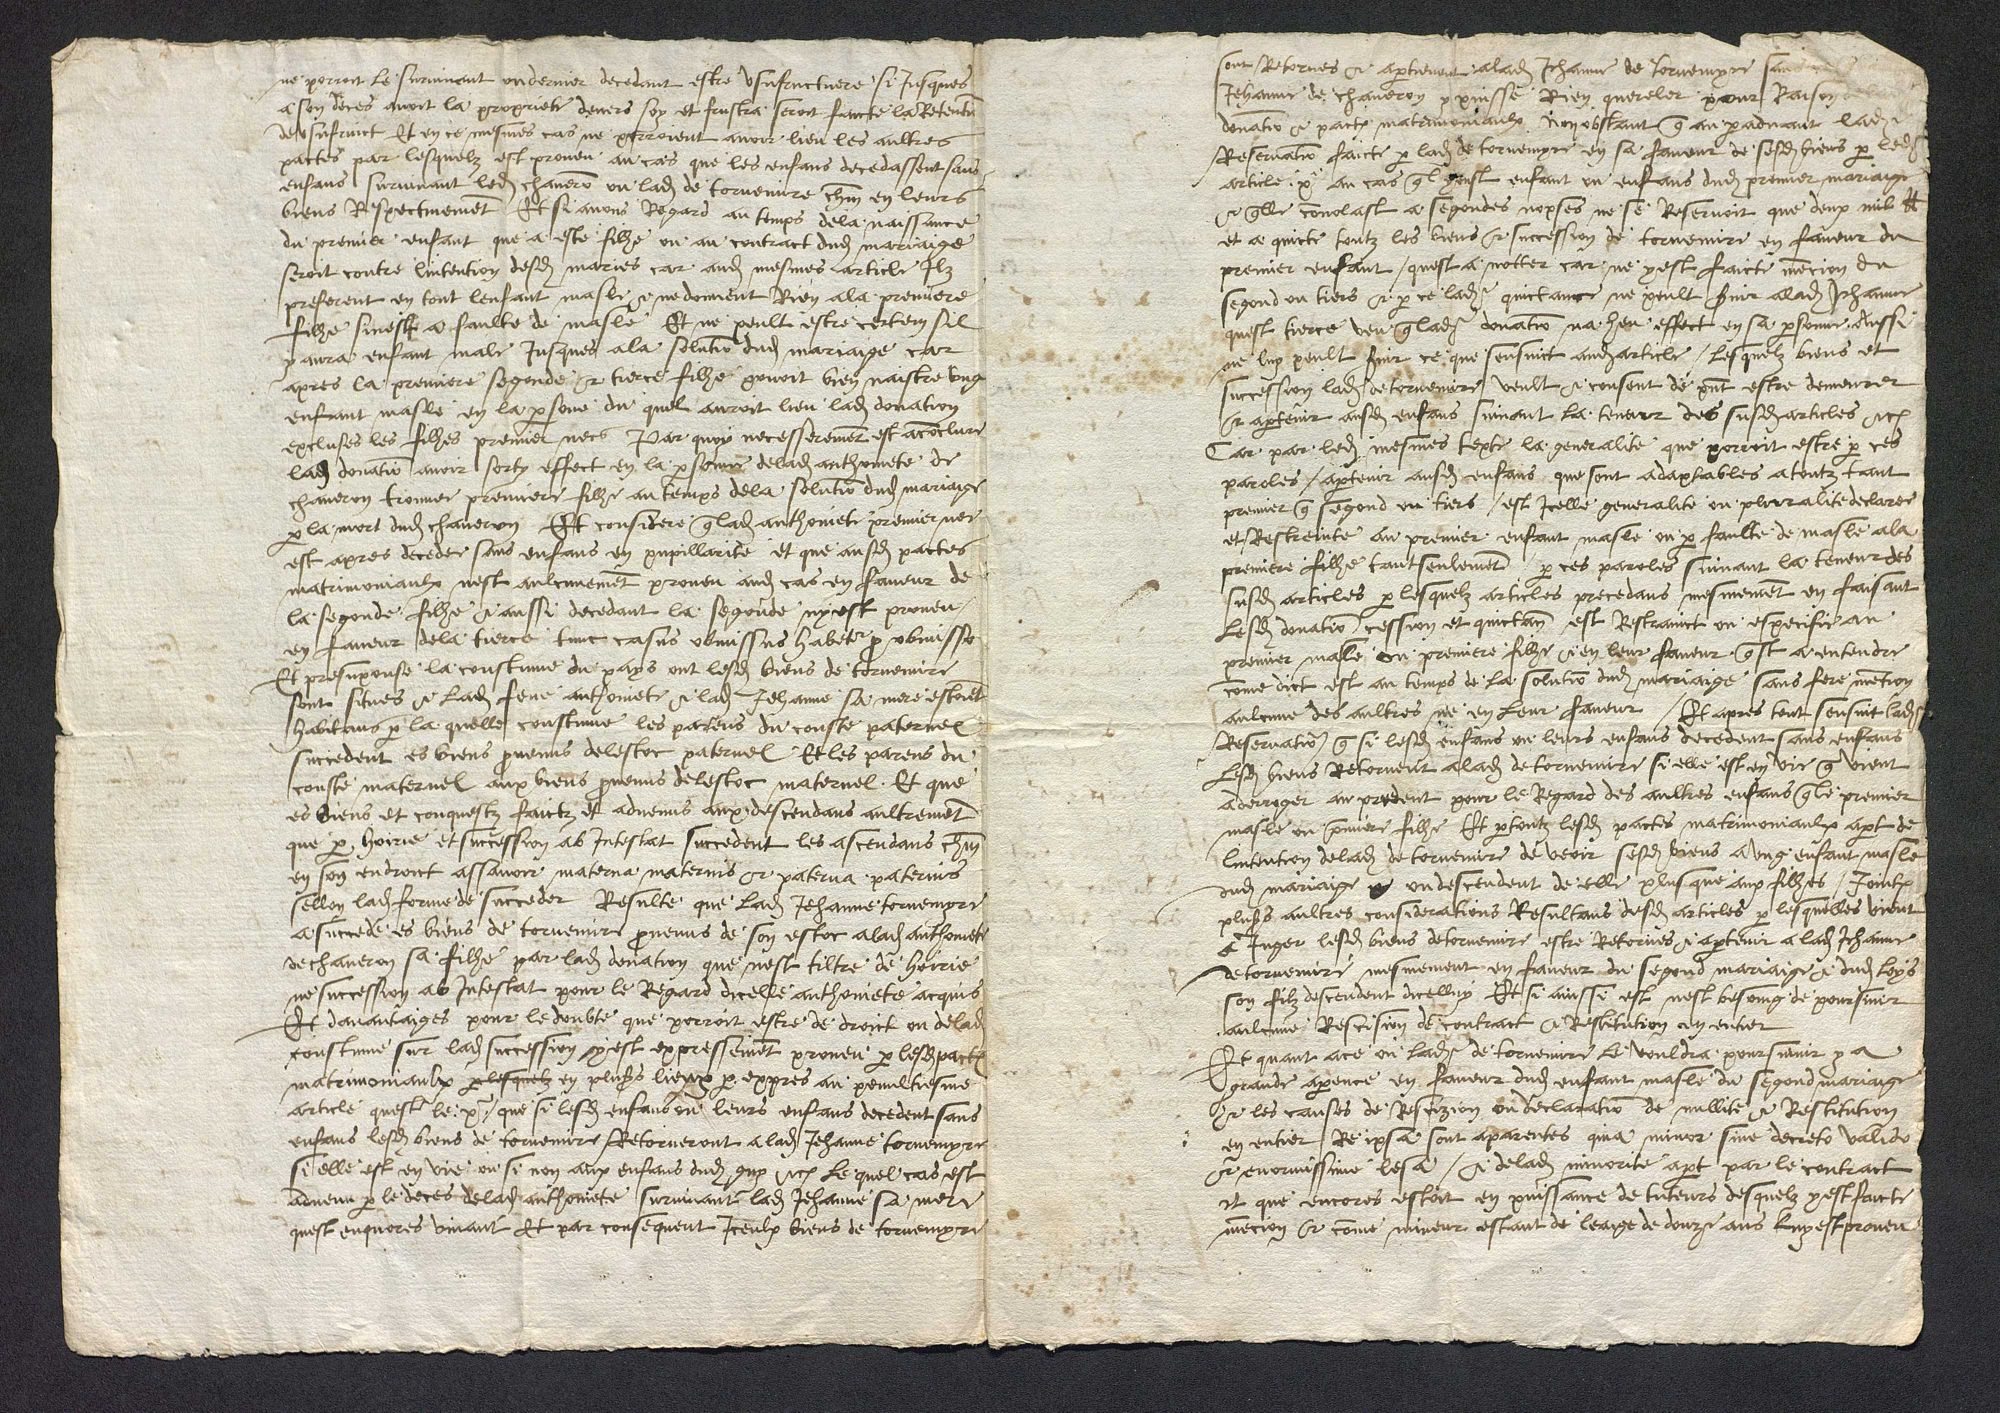 ne porroit le survivant ou dernier decedant estre usufructuere si jusques
a son deces avoit la propriete devers soy et frustra seroit faicte la retention
de usufruict Et en ce mesmes cas ne porroient avoir lieu les aultres
pactes par lesquelz est proveu au cas que les enfans decedassent sans
enfans survivant led chavero ou lad de tornemire chm en leurs
biens respectivement Et si avons regard au temps de la naissance
du premier enfant que a este filhe ou au contract dud mariaige
seroit contre lintention desd maries car aud mesmes article Ilz
preferent en tout lenfant masle & ne donnent rien a la premiere
filhe sinest a faulte de masle Et ne peult estre certem sil
y aura enfant male jusques a la solutio dud mariaige car
apres la premiere segonde & tierce filhe povoit bien naistre ung
enfant masle en la psone du quel auroit lieu lad donation
excluses les filhes premier nees Par quoy necesserement est a coclure
lad donatio avoir sorty effect en la psonne de lad anthoniete de
chaveron trouvee premiere filhe au temps de la solutio dud mariaige
p la mort dud chaveron Et considere q lad anthoniete premier nee
est apres decedee sans enfans en pupillarite et que ausd pactes
matrimoniaulx nest aulcunement proveu aud cas en faveur de
la segonde filhe & aussi decedant la segonde ny est proveu
en faveur de la tierce tunc casus obmissus habetr p obmisso
Et presuppouse la coustume du pays ont lesd biens de tornemire
sont situes & lad feue anthoniete & lad Jehanne sa mere estoient
habitans p la quelle coustume les parens du couste paternel
succedent es biens pvenus de lestoc paternel Et les parens du
couste maternel aux biens pvenus de lestoc maternel Et que
es biens et conquestz faictz et advenus aux descendans aultrement
que p hoirie et succession ab intestat succedent les ascendans chm
en son endroict assavoir materna maternis & paterna paternis
sellon lad forme de succeder Resulte que lad Jehanne tornempre
a succede es biens de tornemire pvenus de son estoc a lad anthoniete
de chaveron sa filhe par lad donation que nest tiltre de hoirie
ne succession ab intestat pour le regard dicelle anthoniete acquis
Et davantaiges pour le doubte que porroit estre de droict ou de lad
coustume sur lad succession y est expressement proveu p lesd pactz
matrimoniaulx p lesquelz en plusrs lieux p expres au penultiesme
article quest le x que si lesd enfans ou leurs enfans decedent sans
enfans lesd biens de tornemire retorneront a lad Jehanne tornempre
si elle est en vie ou si non aux enfans dud &c le quel cas est
advenu p le deces de lad anthoniete survivant lad Jehanne sa mere
quest enquores vivant Et par consequent Iceulx biens de tornempre
sont retornes & aptienent a lad Jehanne de tornempre sans
Jehanne de chaveron y puisse rien quereler pour raison
donatio & pactz matrimoniaulx non obstant q au paravant lad
reservatio faicte p lad de tornempre en sa faveur de sesd biens p led
article x au cas ql ny eust enfant ou enfans dud premier mariaige
& qlle convolast a segondes nopses ne se reservoit que deux mil tt
et a quicte toutz les biens & succession de tornemire en faveur du
premier enfant / quest a notter car ne y est faicte mecion du
segond ou tiers & p ce lad quictance ne peult s[er]vir a lad Jehanne
quest tierce veu q lad donatio na heu effect en sa psonne Aussi
ne luy peult s[er]vir ce que sensuict aud article / Lesquelz biens et
succession lad de tornemire veult & consent de pnt estre demeurer
& aptenir ausd enfans suivant la teneur des susd articles &c
Car par led mesmes texte la generalite que porroit estre p ces
paroles / aptenir ausd enfans que sont adaptables a toutz tant
premier q segond ou tiers / est icelle generalite ou pluralite declaree
et restreinte au premier enfant masle ou p faulte de masle a la
premiere filhe tant seulement p ces paroles suivant la teneur des
susd articles p lesquelz articles precedans mesmement en faisant
lesd donatio cession et quictan est restrainct ou especifie au
premier male ou premiere filhe & en leur faveur qst a entendre
come dict est au temps de la solutio dud mariaige sans fere mention
aulcune des aultres ne en leur faveur / Et apres tout sensuit lad
reservatio q si lesd enfans ou leurs enfans decedent sans enfans
lesd biens retornent a lad de tornemire si elle est en vie q vient
a derroger au precedent pour le regard des aultres enfans q le premier
masle ou pmiere filhe Et p toutz lesd pactes matrimoniaulx apt de
lintention de lad de tornemire de veoir sesd biens a ung enfant masle
dud mariaige ou descendent de elle plus que aux filhes / Joint
plusrs aultres considerations resultans desd articles p lesquelles vient
a juger lesd biens de tornemire estre retornes & aptenir a lad Jehanne
de tornemire mesmement en faveur du segond mariaige & dud loys
son filz descendent dicelluy Et si ainssi est nest besoing de poursuivir
aulcune rescision de contract & restitution en entier
Et quant a ce ou lad de tornemire le vouldra poursuivir y a
grande apence en faveur dud enfant masle du segond mariaige
& les causes de rescizion ou declaratio de nullite & restitution
en entier Re ipsa sont aparentes quia minor sine decreto valido
& enormissime lesa / & de lad minorite apt par le contract
et que encores estoit en puissance de tuteurs desquelz y est faicte
mecion & come mineur estant de leaige de douze ans luy est proveu